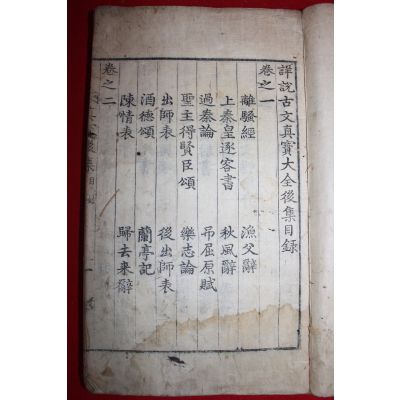 詳說古文真寳大全後集目錄
卷之一
離騷經 漁父辭
上秦皇逐客書 秋風辭
過秦論 吊屈原賦
聖主得賢臣頌 樂志論
出師表 後出師表
酒德頌 蘭亭記
陳情表 歸去来辭
卷之二